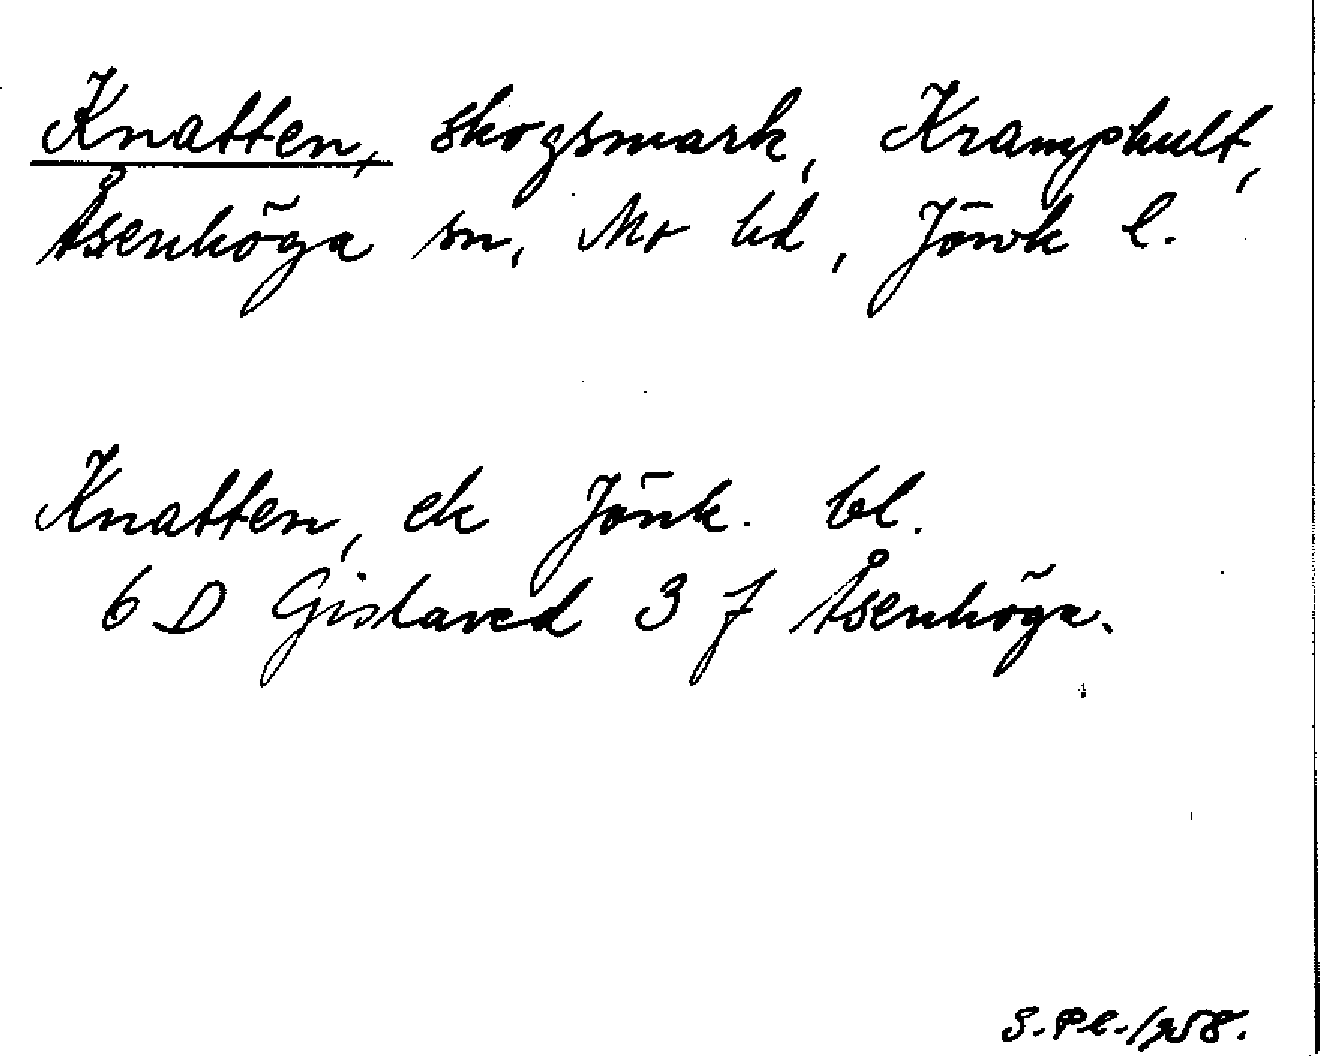 Knatten, skogsmark, Kramphult,
Åsenhöga sn, Mo hd, Jönk l.
Knatten, ek Jönk. bl.
6 D Gislaved 3 f Åsenhöga.
S. Pl. 1958.